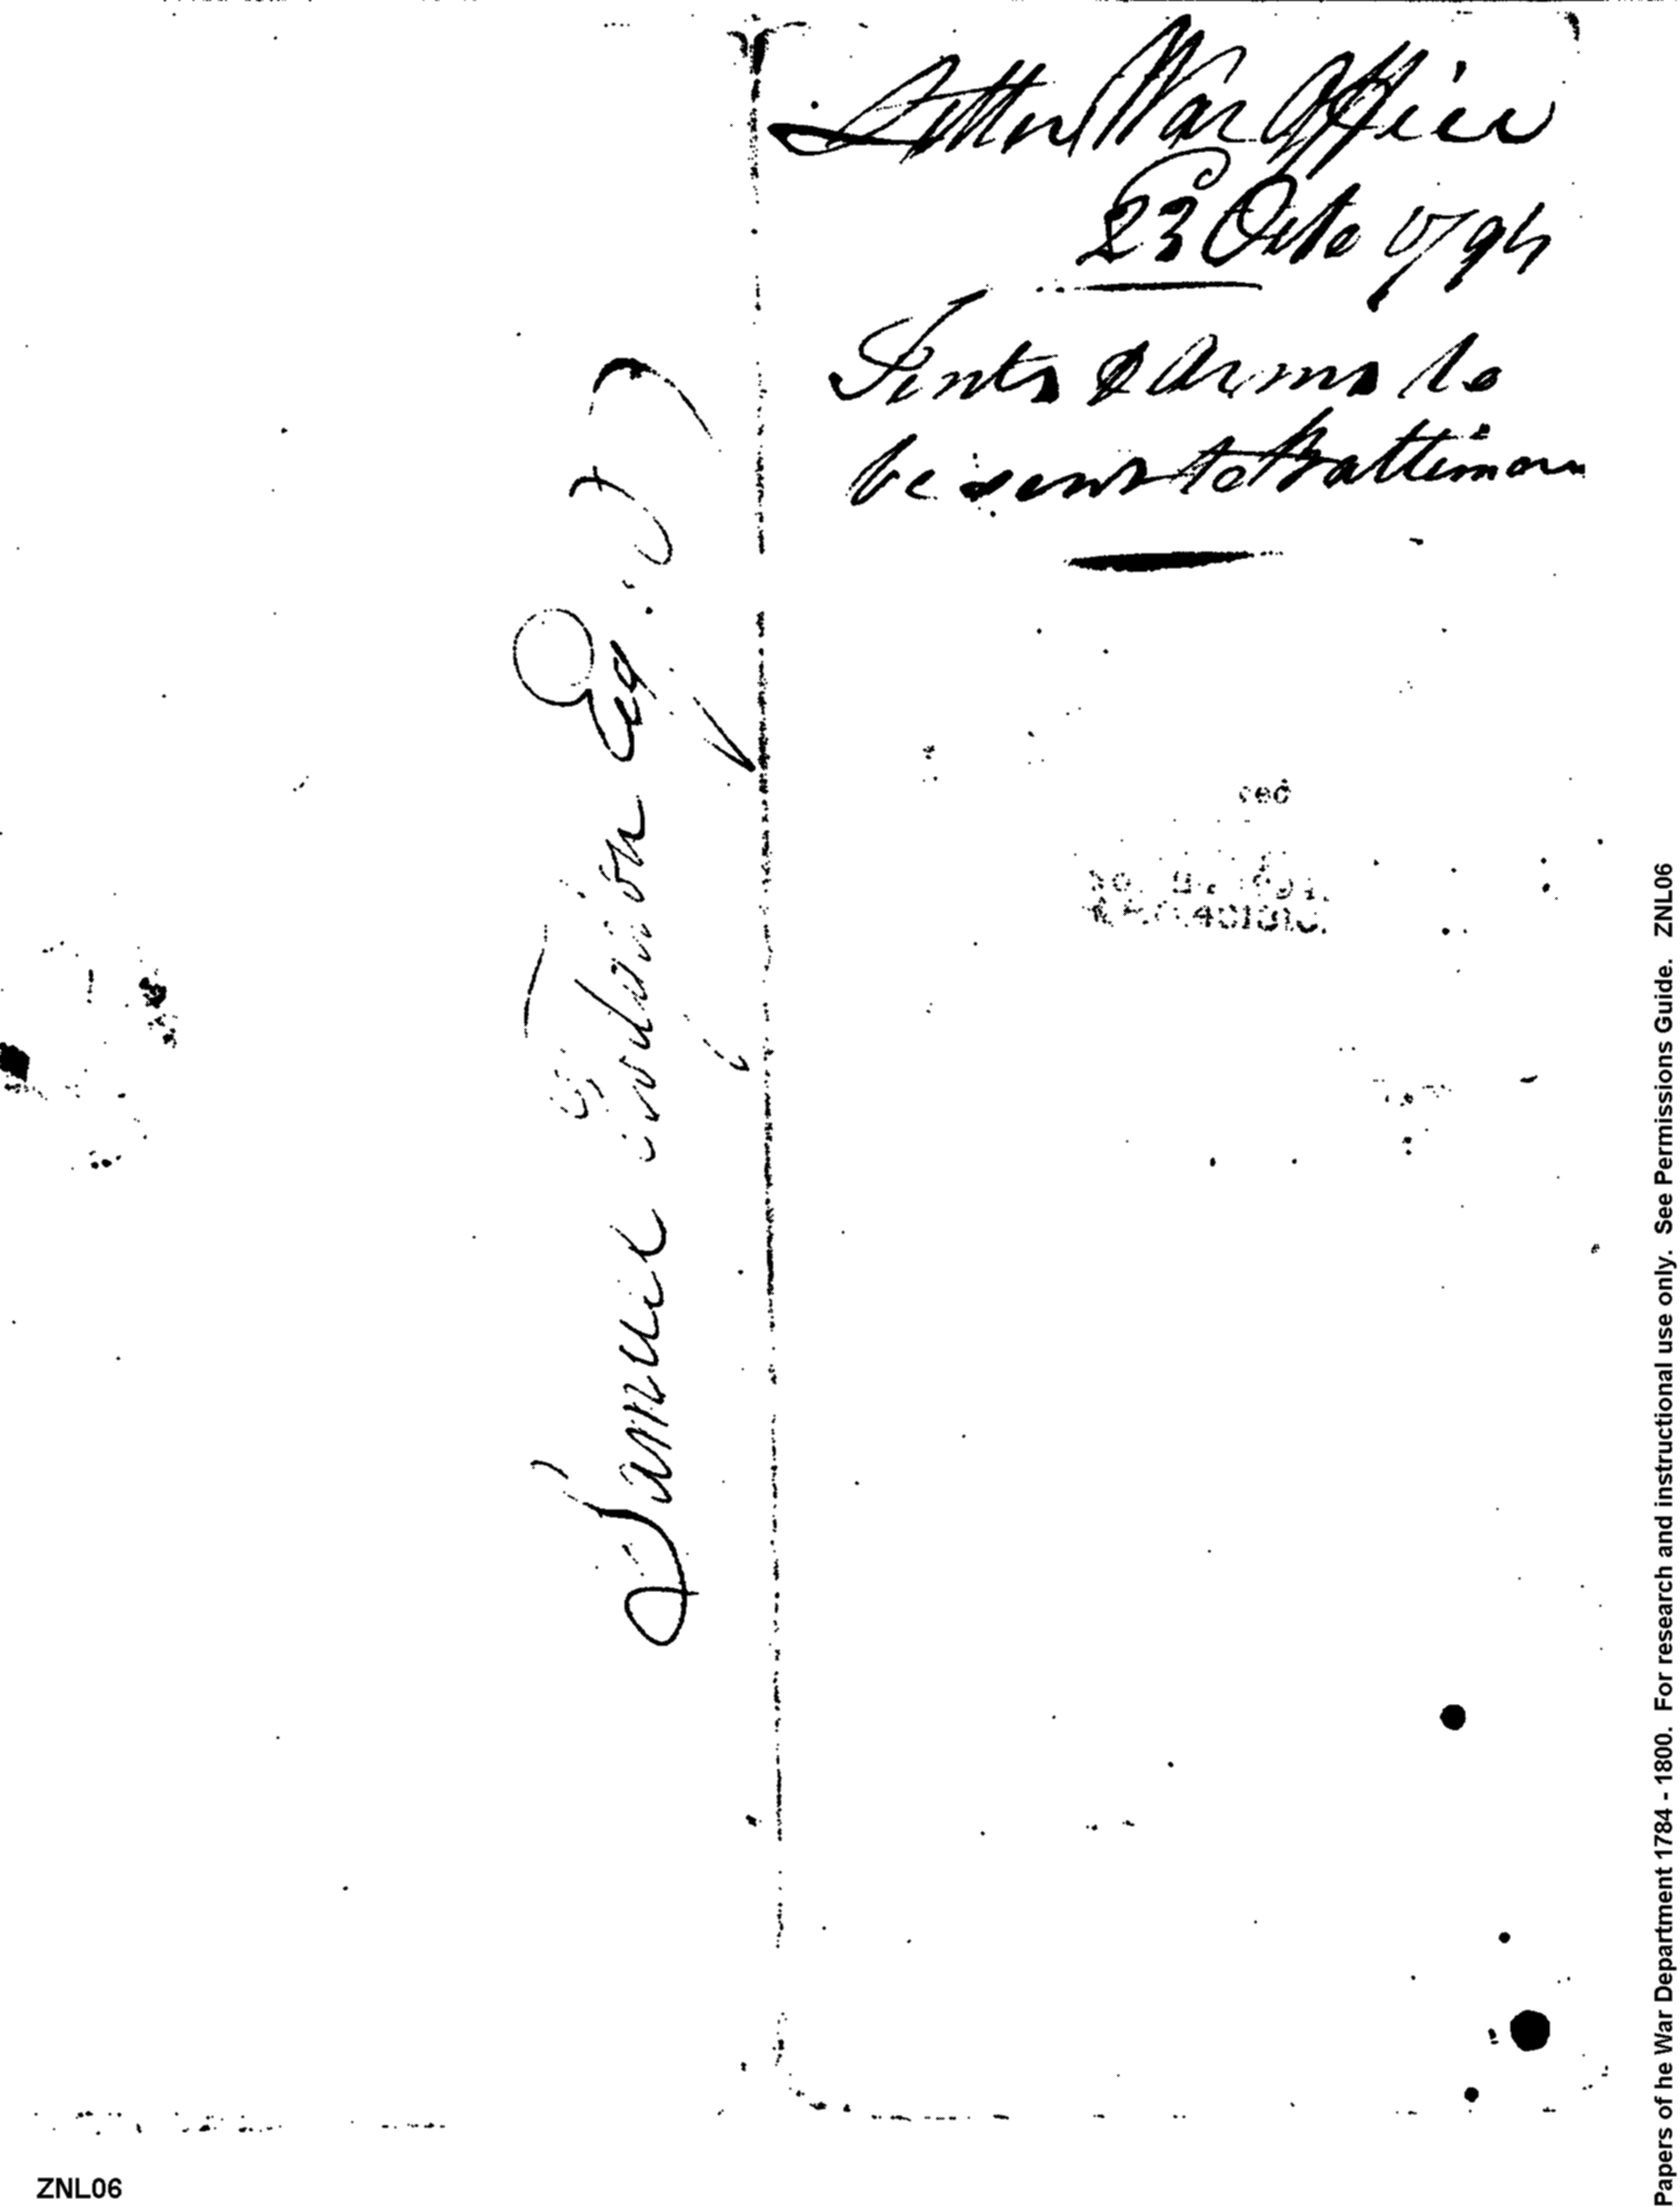 Letter War Office
23 Octo 1794
Tents & Arms to
be sent to Baltimore
Samuel Hodgdon Esq.
Papers of he War Department 1784 - 1800. For research and instructional use only. See Permissions Guide. ZNL06
ZNL06